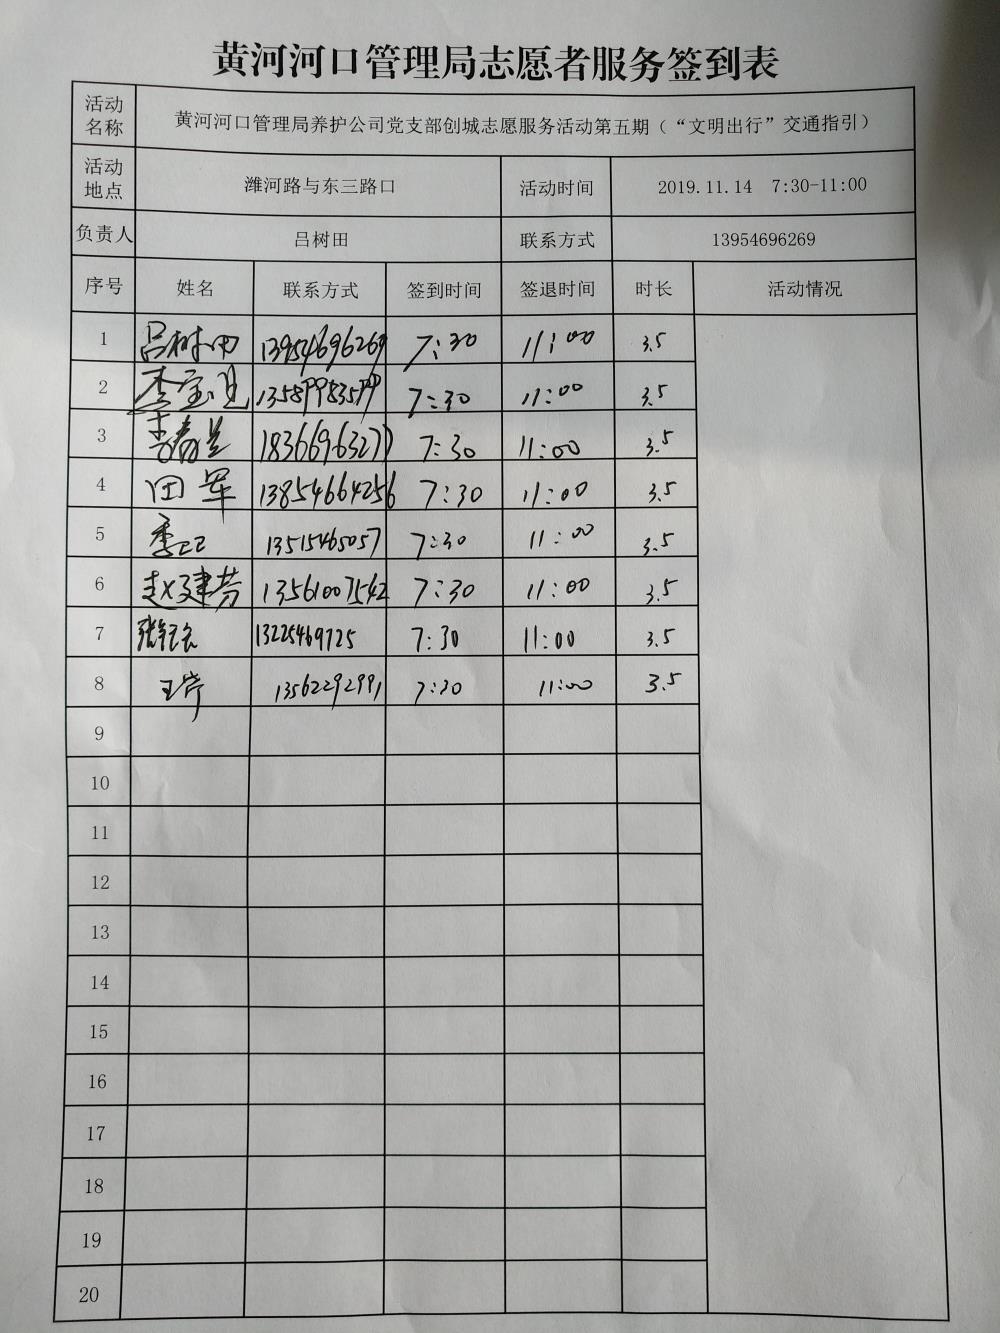 黄河河口管理局志愿者服务签到表
活动名称 黄河河口管理局养护公司党支部创城志愿服务活动第五期（“文明出行”交通指引）
活动地点 潍河路与东三路口 活动时间 2019.11.14 7:30-11:00
负责人 吕树田 联系方式 13954696269
序号 姓名 联系方式 签到时间 签退时间 时长 活动情况
1 吕树田 13954696269 7:30 11:00 3.5
2 7:30 11:00 3.5
3 李春兰 7:30 11:00 3.5
4 田军 13854664256 7:30 11:00 3.5
5 13515465057 7:30 11:00 3.5
6 赵建芳 13561007542 7:30 11:00 3.5
7 13225469725 7:30 11:00 3.5
8 13562292991 7:30 11:00 3.5
9
10
11
12
13
14
15
16
17
18
19
20